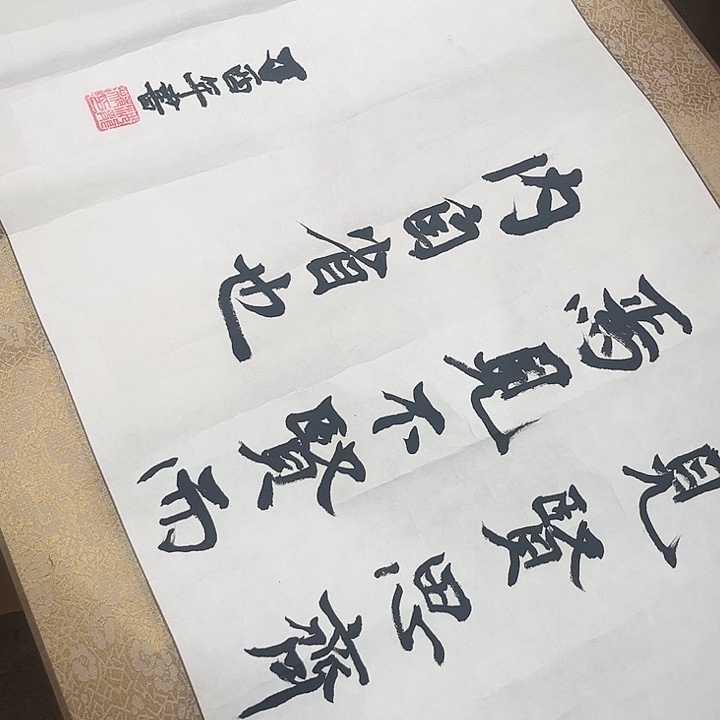 見賢思齊
焉見不賢而
内自省也
丁酉年書